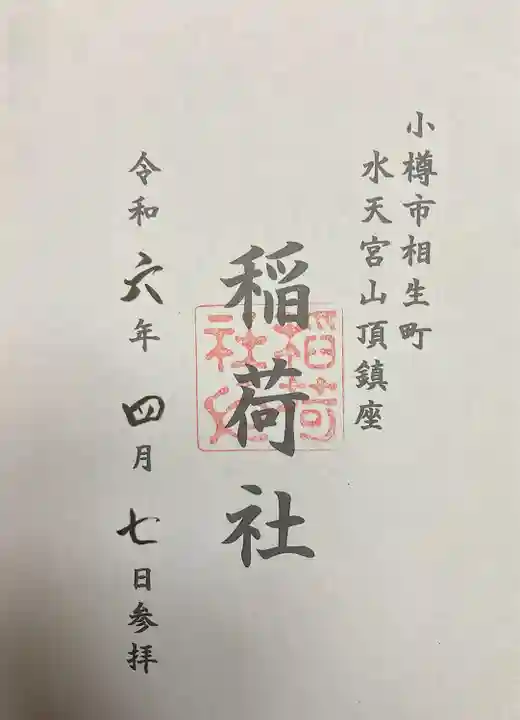 小樽市相生町
水天宮山頂鎮座
稲荷社
稲荷
社之
令和六年四月七日参拝